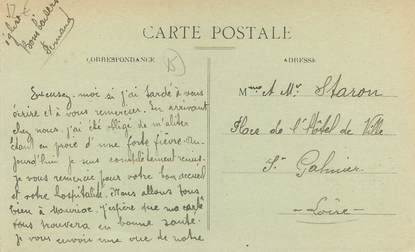 église
CARTE POSTALE
CORRESPONDANCE
15
ADRESSE
Excusez-moi si j'ai tardé à vous
écrire et à vous remercier. En arrivant
chez nous j'ai été obligé de m'aliter
étant en proie d'une forte fièvre. Au-
jourd'hui je suis complètement remis.
Je vous remercie pour votre bon accueil
et votre hospitalité. Nous allons tous
bien à Mauriac. J'espère que ma carte
vous trouvera en bonne santé.
Je vous envoie une vue de notre
Mme et Mr Staron
Place de l'Hôtel de Ville
St Galmier
Loire